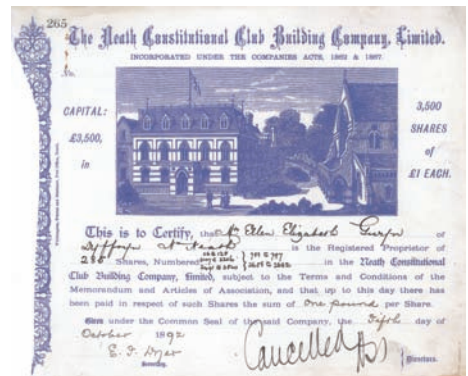 265
The Neath Constitutional Club Building Company, Limited.
INCORPORATED UNDER THE COMPANIES ACTS, 1862 & 1867
No.
CAPITAL:
£3,500,
in
3,500
SHARES
of
£1 EACH.
This is to Certify, that Ellen Elizabeth of
Neath is the Registered Proprietor of
Shares, Numbered in the Neath Constitutional
Club Building Company, Limited, subject to the Terms and Conditions of the
Memorandum and Articles of Association, and that up to this day there has
been paid in respect of such Shares the sum of One pound per Share.
Given under the Common Seal of the said Company, the Fifth day of
October 1892
Cancelled
Secretary.
Directors.